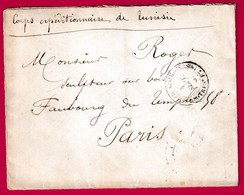 Corps expéditionnaire de Tunisie
Monsieur Roger
sculpteur sur b
Faubourg du Temple 58
Paris